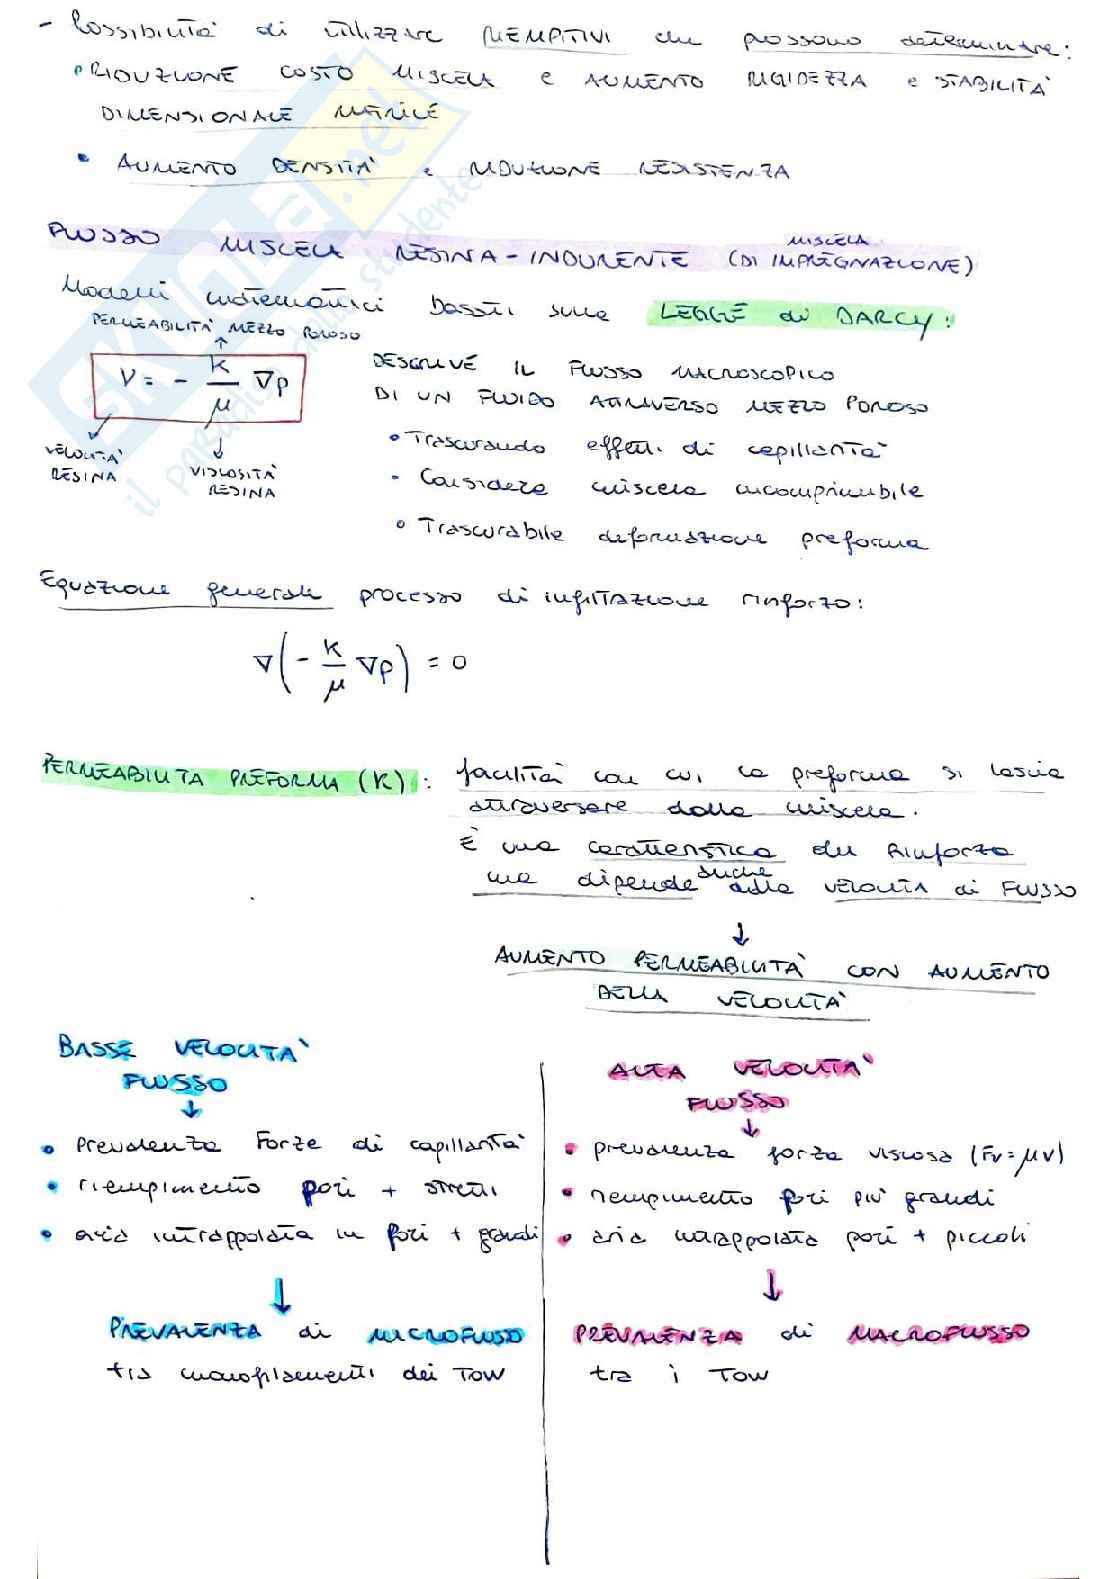 - Possibilità di utilizzare RIEMPITIVI che possono determinare:
• RIDUZIONE COSTO MISCELA e AUMENTO RIGIDEZZA e STABILITÀ
DIMENSIONALE MATRICE
• AUMENTO DENSITÀ e RIDUZIONE RESISTENZA
FLUSSO MISCELA RESINA-INDURENTE (DI IMPREGNAZIONE)
MISCELA
Modelli matematici basati sulla LEGGE di DARCY:
PERMEABILITÀ MEZZO POROSO
V = - K/μ ∇p
VELOCITÀ RESINA
VISCOSITÀ RESINA
DESCRIVE IL FLUSSO MACROSCOPICO
DI UN FLUIDO ATTRAVERSO MEZZO POROSO
• Trascurando effetti di capillarità
- Considera miscela incomprimibile
• Trascurabile deformazione preforma
Equazione generale processo di infiltrazione rinforzo:
∇(- K/μ ∇p) = 0
PERMEABILITÀ PREFORMA (K): facilità con cui la preforma si lascia
attraversare dalla miscela.
È una caratteristica del Rinforzo
ma dipende anche dalla VELOCITÀ di FLUSSO
↓
AUMENTO PERMEABILITÀ CON AUMENTO
DELLA VELOCITÀ
BASSE VELOCITÀ
FLUSSO
↓
• Prevalenza Forze di capillarità
• riempimento pori + stretti
• aria intrappolata in pori + grandi
↓
PREVALENZA di MICROFLUSSO
tra monofilamenti dei TOW
ALTA VELOCITÀ
FLUSSO
↓
• prevalenza forza viscosa (Fv=μv)
• riempimento pori più grandi
• aria intrappolata pori + piccoli
↓
PREVALENZA di MACROFLUSSO
tra i TOW
SKUOLA.net
il paradiso dello studente